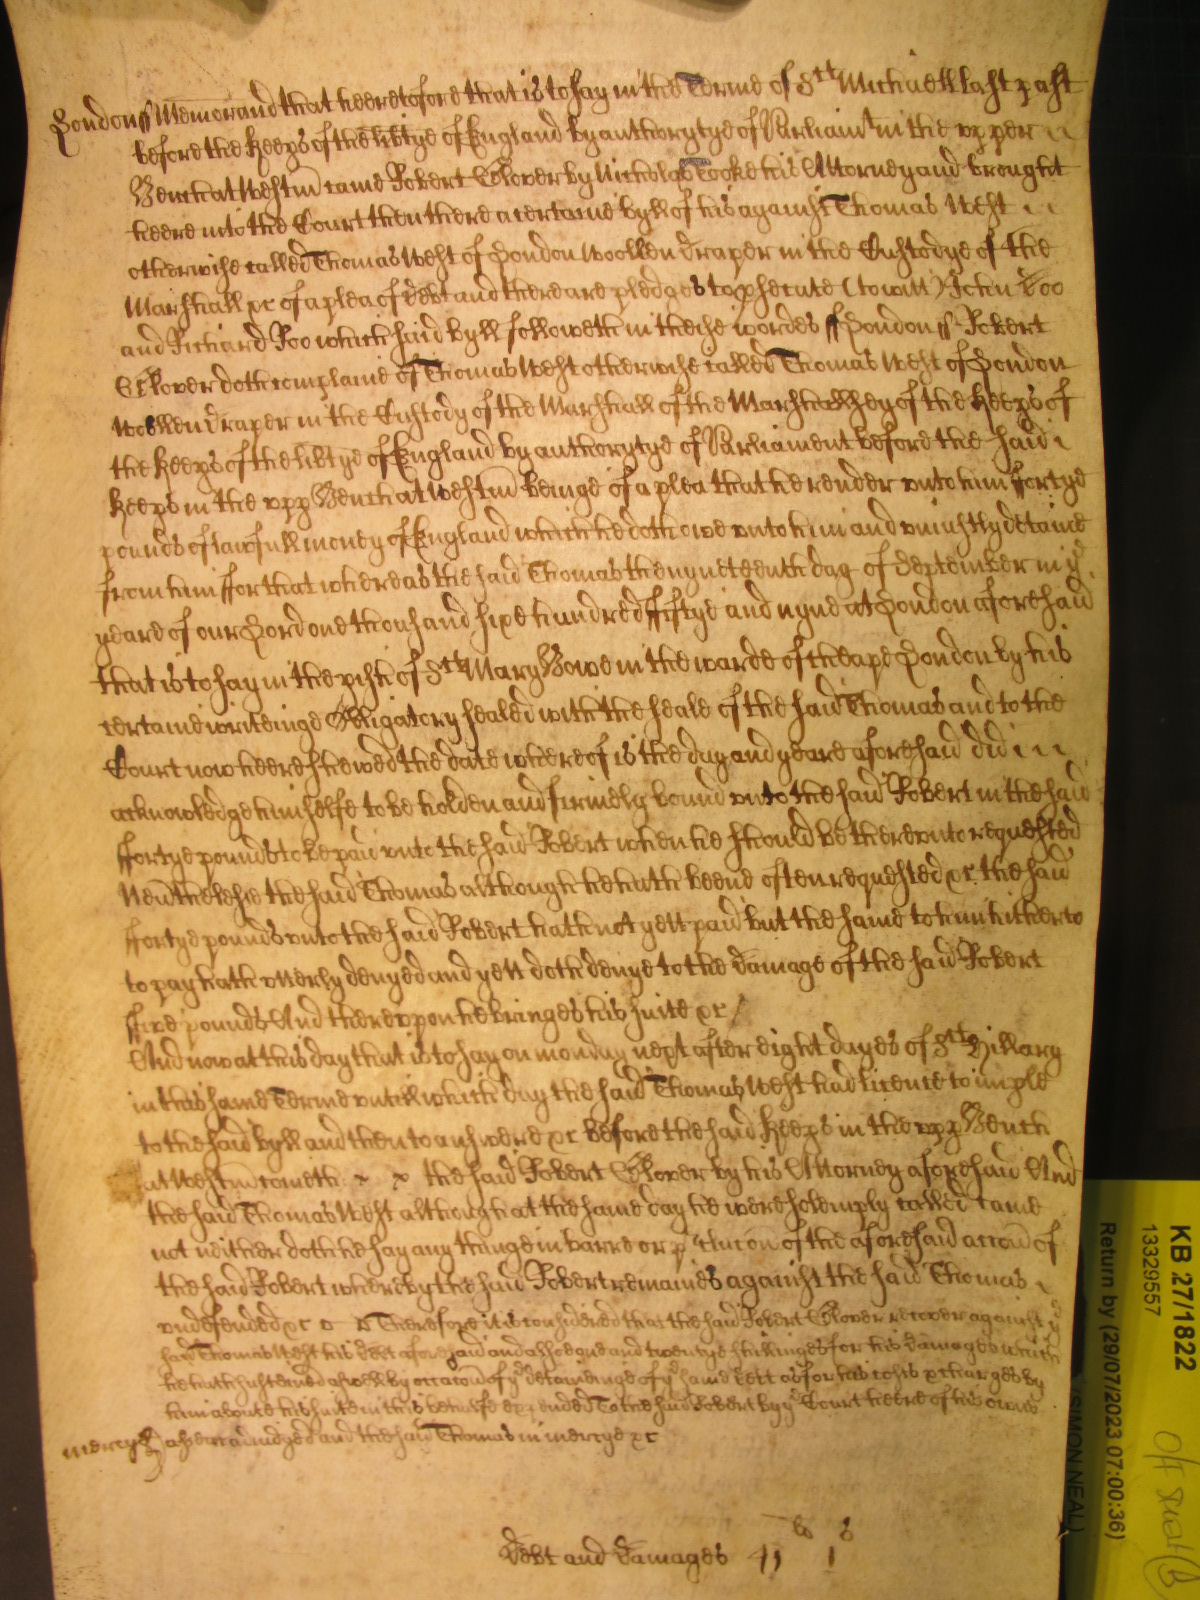 London ss Memorand that heeretofore that is to say in the Terme of Snt Michaell last past
before the Keeps of the libtye of England by authorytye of Parliamt in the upper
Bench at Westm came Robert Glover by Nicholas Cooke his Attorney and brought
heere into the Court then there a certaine byll of his against Thomas West
otherwise called Thomas West of London woollen draper in the Custodye of the
Marshall &c of a plea of debt and there are pledges to psecute (to witt) John Doo
and Richard Roo which said byll followeth in theise wordes ss London ss Robert
Glover doth complaine of Thomas West otherwise called Thomas West of London
woollen draper in the Custody of the Marshall of the Marshallsey of the Keeps of
the Keeps of the libtye of England by authorytye of Parliament before the said
Keeps in the upp Bench at Westm beinge of a plea that he render unto him ffortye
pounds of lawfull money of England which he doth owe unto him and uniustly detaine
from him ffor that whereas the said Thomas the nyneteenth day of September in ye
yeare of our Lord one thousand sixe hundred ffiftye and nyne at London aforesaid
that is to say in the pishe of Snt Mary Bowe in the warde of Cheape London by his
certaine writeinge Obligatory sealed with the seale of the said Thomas and to the
Court now heere shewed the date whereof is the day and yeare aforesaid did
acknowledge himselfe to be holden and firmely bound unto the said Robert in the said
ffortye pounds to be paid unto the said Robert when he should be thereunto requested
Nevtheless the said Thomas although he hath beene often requested &c the said
ffortye pounds unto the said Robert hath not yett paid but the same to him hitherto
to pay hath utterly denyed and yett doth denye to the damage of the said Robert
ffive pounds And thereupon he bringes his suite &c /
And now at this day that is to say on monday next after eight dayes of Snt Hillary
in this same Terme untill which day the said Thomas West had licence to imple
to the said byll and then to answere &c before the said Keeps in the upp Bench
at Westm cometh the said Robert Glover by his Attorney aforesaid And
the said Thomas West although at the same day he were solemply called came
not neither doth he say any thinge in barre or pclucon of the aforesaid accon of
the said Robert whereby the said Robert remaines against the said Thomas
undefended &c Therefore it is considered that the said Robert Glover recover against ye
said Thomas West his debt aforesaid and alsoe one and twentye shillinges for his damages which
he hath susteined aswell by occacon of ye deteininge of ye same debt as for his costs & charges by
him aboute his suite in this behalfe expended To the said Robert by ye Court heere of his owne
mercye assent adiudged and the said Thomas in mercye &c
Debt and damages 41 l 1 s
KB 27/1822
13329557
Return by (29/07/2023 07:00:36)
(SIMON NEAL)